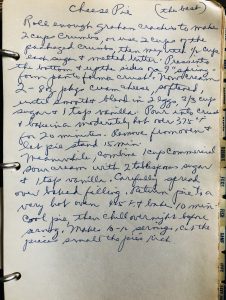 Cheese Pie (the best)
Roll enough graham crackers to make
2 cups crumbs, or use 2 cups of the
packaged crumbs, then mix with 1/2 cup
each sugar & melted butter. Press onto
the bottom & up the sides of 9"
form to make a firm crust. Now cream
2 - 8oz pkgs cream cheese, softened,
until smooth & blend in 2 eggs, 2/3 cup
sugar & 1 tsp vanilla. Pour into crust
& bake in a moderately hot oven 325°
for 20 minutes. Remove from oven &
let pie stand 15 min.
Meanwhile, combine 1 cup commercial
sour cream with 2 tablespoons sugar
& 1 tsp vanilla. Carefully spread
over baked filling. Return pie to a
very hot oven & bake 10 min.
Cool pie, then chill overnight before
serving. Makes 8-10 servings, cut the
pieces small the pie's rich